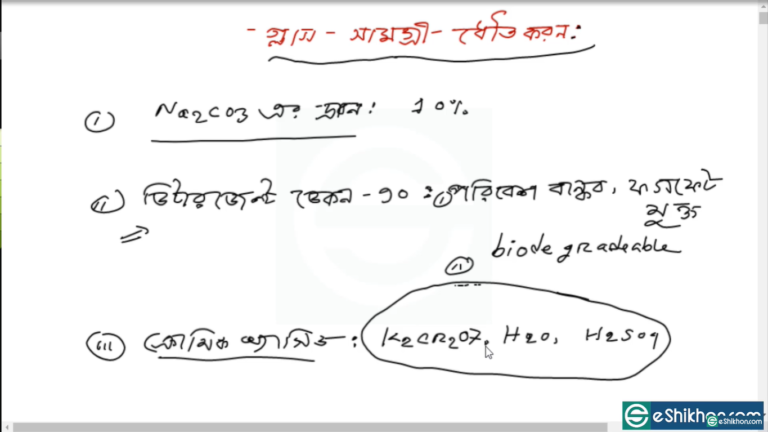 - গ্লাস - সামগ্রী - ধৌতকরন:
(i) Na2CO3 এর দ্রবন: 10%.
(ii) ডিটারজেন্ট ডেকন - ৯০ : (i) পরিবেশ বান্ধব, ফসফেট
মুক্ত
(ii) biodegradeable
(iii) ক্রোমিক অ্যাসিড : K2Cr2O7, H2O, H2SO4
eShikhon.com
eShikhon.com